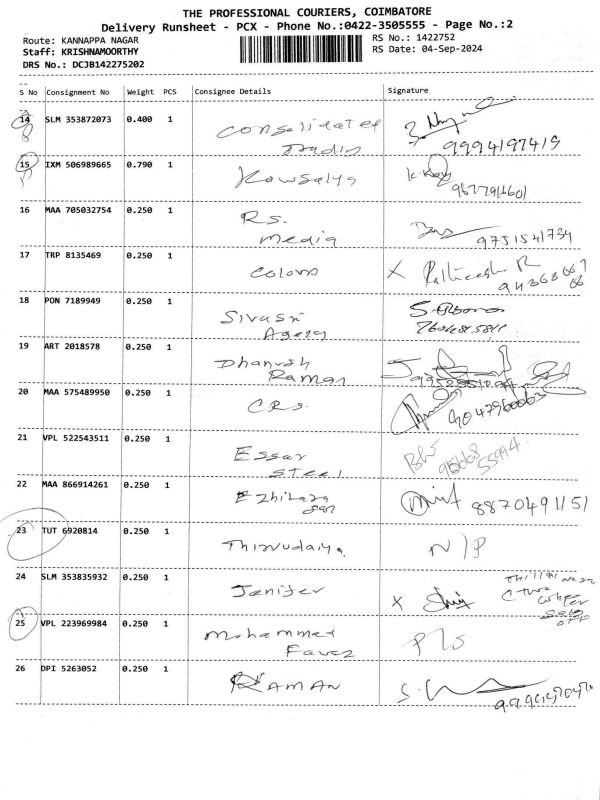 THE PROFESSIONAL COURIERS, COIMBATORE
Delivery Runsheet - PCX - Phone No.:0422-3505555 - Page No.:2
Route: KANNAPPA NAGAR
RS No.: 1422752
Staff: KRISHNAMOORTHY
RS Date: 04-Sep-2024
DRS No.: DCJB142275202
S No Consignment No Weight PCS Consignee Details Signature
14 SLM 353872073 0.400 1 Consolidated
9994197419
15 IXM 506989665 0.790 1 Kowsalya
16 MAA 705032754 0.250 1 RS.
media 9751541734
17 TRP 8135469 0.250 1 Colours X
18 PON 7189949 0.250 1 Sivasri
Agency
19 ART 2018578 0.250 1 Dhanush
Raman
20 MAA 575489950 0.250 1 C.R.S. 9047960063
21 VPL 522543511 0.250 1 Essar
Steel 95668 55994
22 MAA 866914261 0.250 1 Ezhilara
san 8870491151
23 TUT 6920814 0.250 1 Thirudaiya N/P
24 SLM 353835932 0.250 1 Jenifer X
25 VPL 223969984 0.250 1 Mohammed
Favaz
26 DPI 5263052 0.250 1 RAMAN